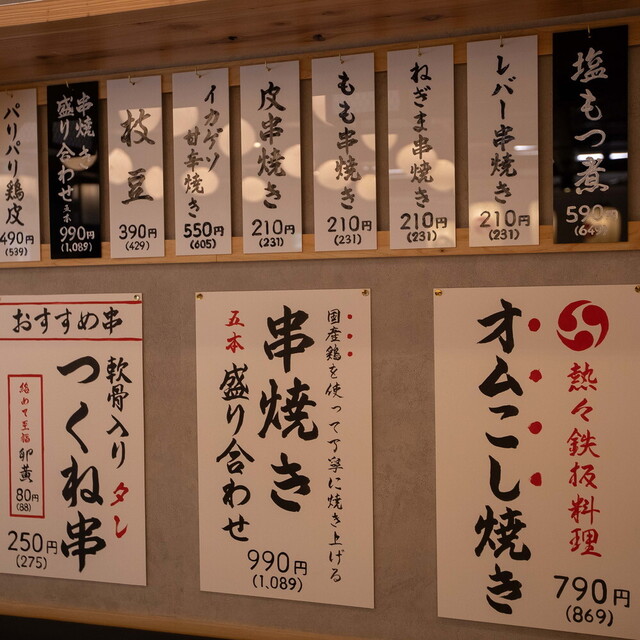 塩もつ煮
590円
(649)
レバー串焼き
210円
(231)
ねぎま串焼き
210円
(231)
もも串焼き
210円
(231)
皮串焼き
210円
(231)
イカゲソ
甘辛焼き
550円
(605)
枝豆
390円
(429)
串焼き
盛り合わせ五本
990円
(1,089)
パリパリ鶏皮
490円
(539)
熱々鉄板料理
オムこし焼き
790円
(869)
国産鶏を使って丁寧に焼き上げる
串焼き
五本
盛り合わせ
990円
(1,089)
おすすめ串
軟骨入り
タレ
つくね串
絡めて至福
卵黄
80円
(88)
250円
(275)